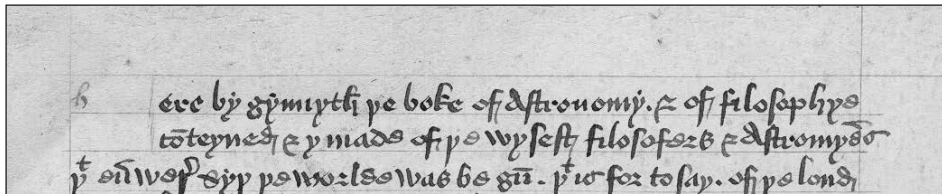 h ere by gynnyth þe boke of Astronomy. & of filosophye
cōteyned & y made of þe wysest filosofers & Astromyēs
þt eū wes syþ þe worlde was be gū. þt is for to say. of þe lond